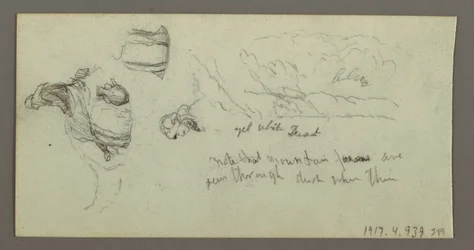 yel white Dust
note that mountain forms are
seen through dust when thin
1917.4.939